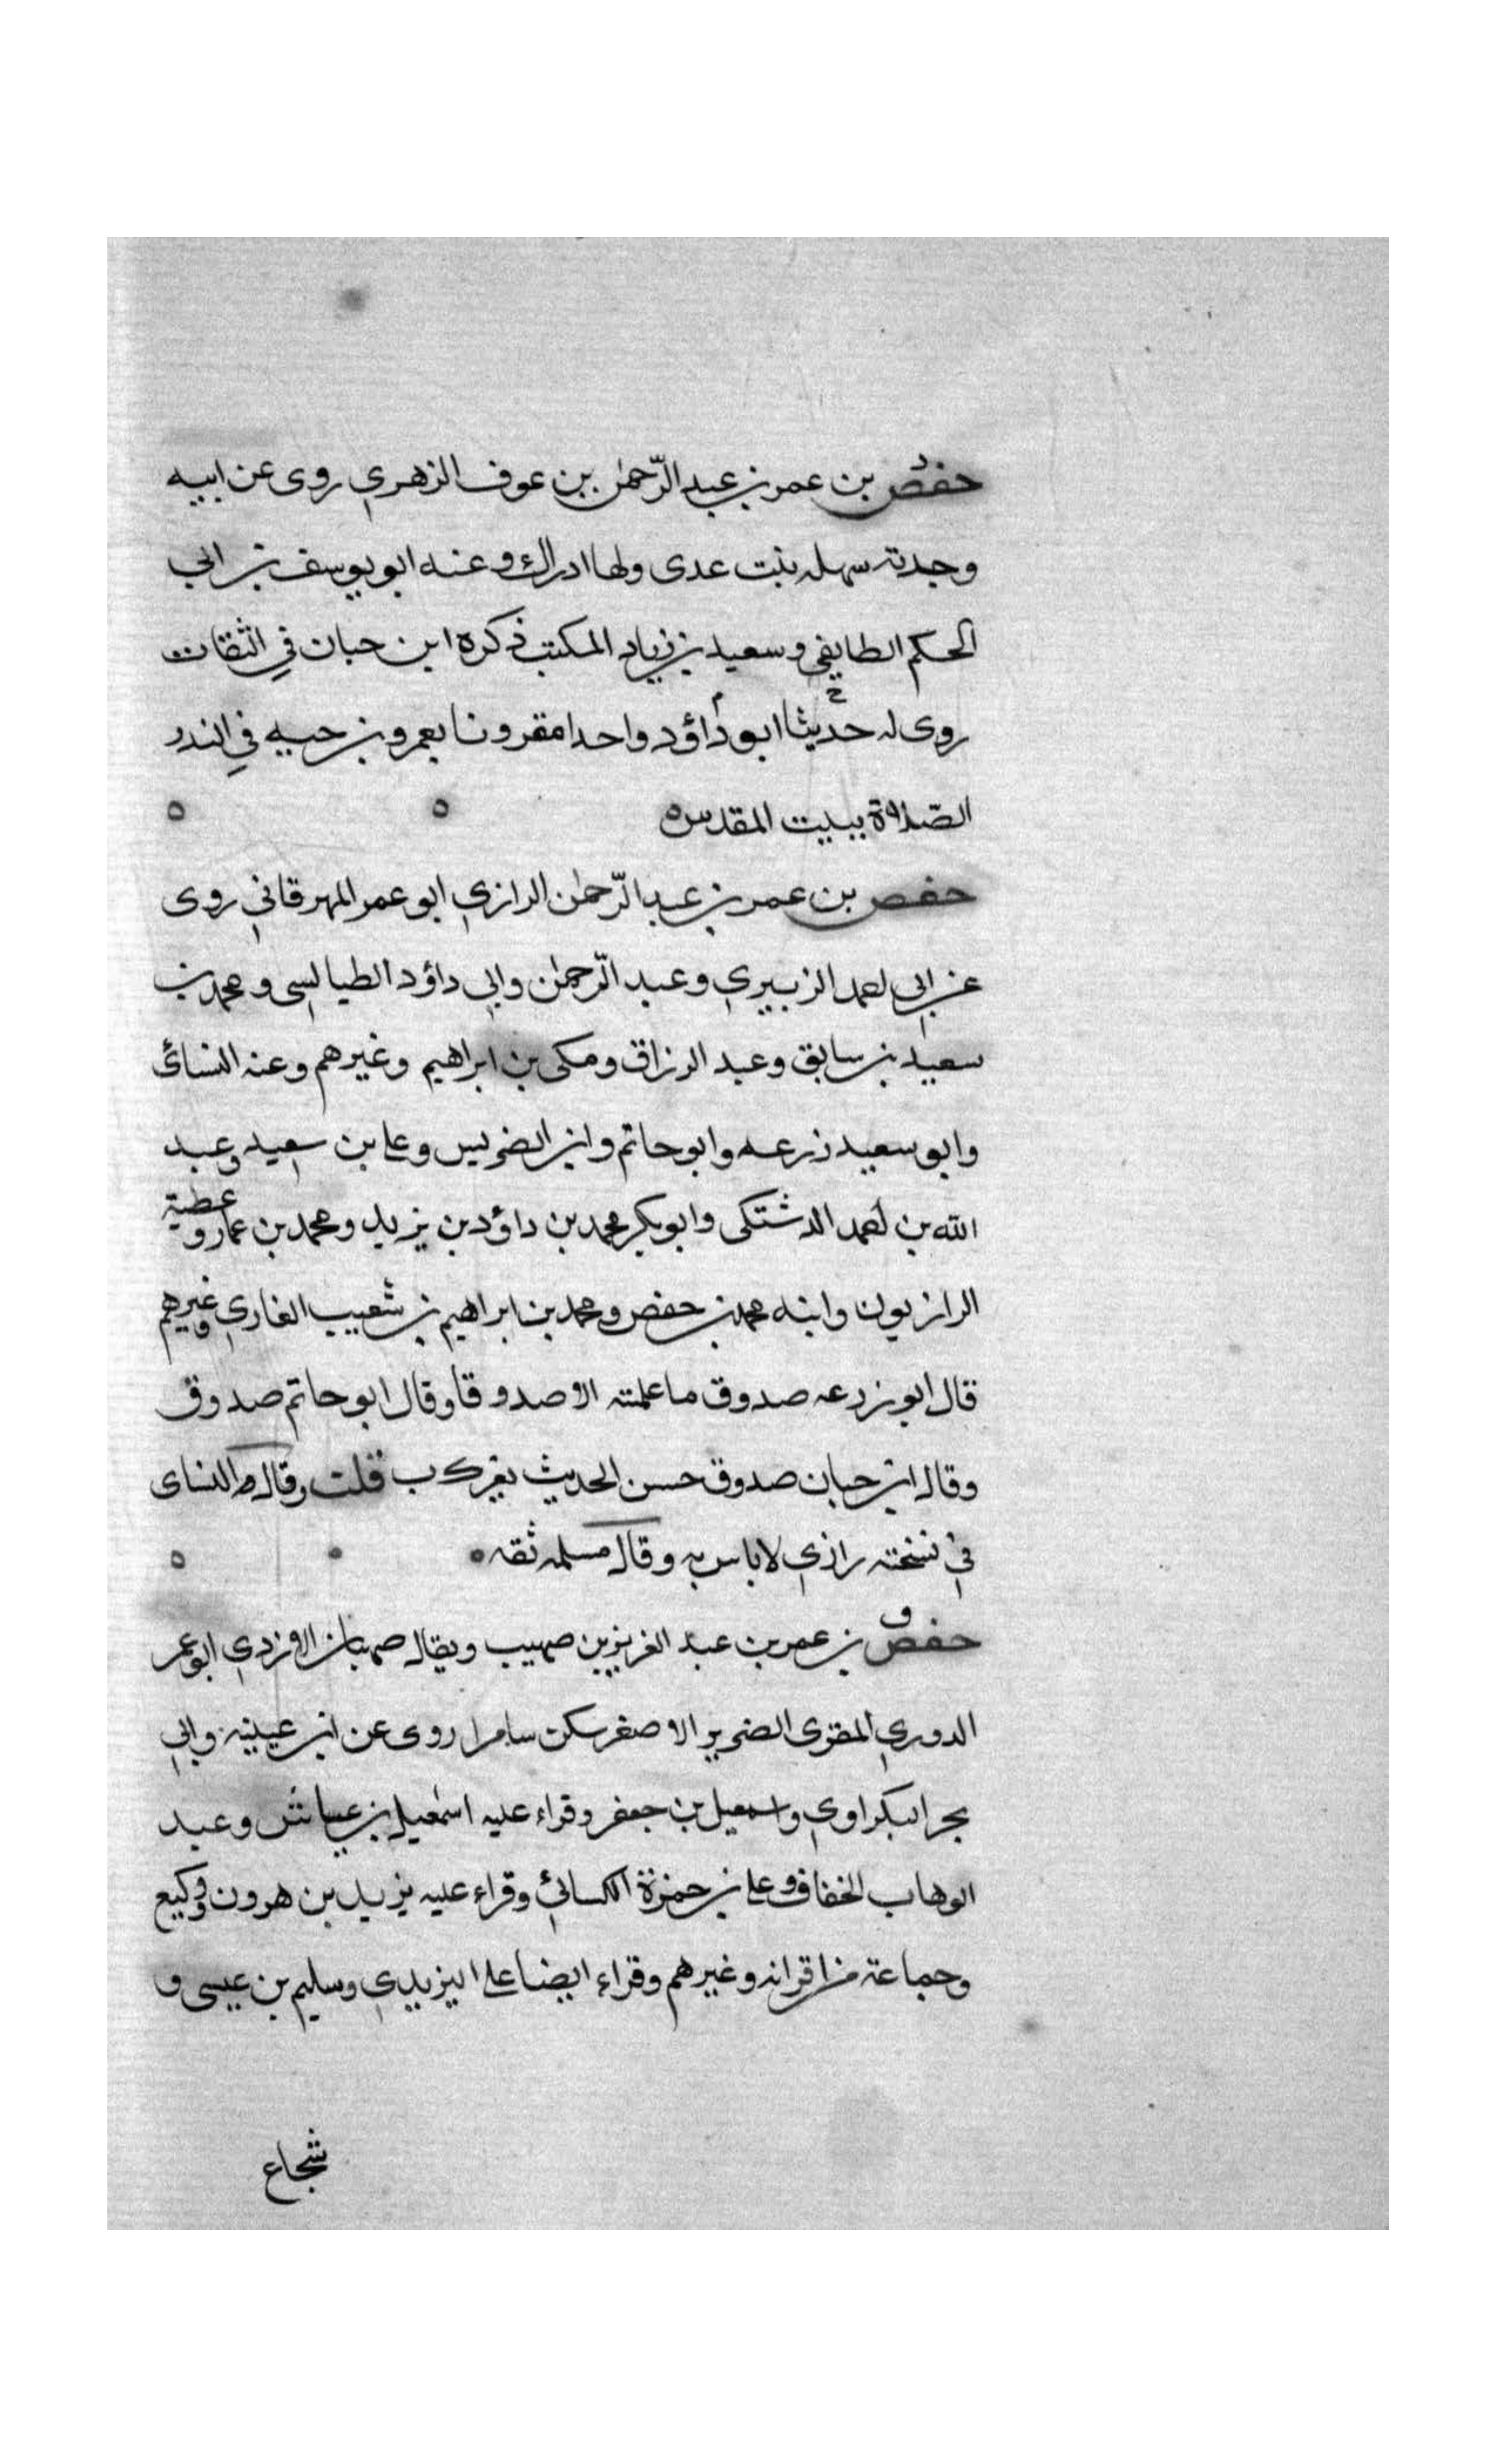 حفص بن عمر بن عبد الرّحمٰن بن عوف الزهري روى عن ابيه
وجدته سهله بنت عدى ولها ادراك وعنه ابو يوسف بن ابي
الحكم الطايفي وسعيد بن زياد المكتب ذكره ابن حبان في الثقات
روى له حديثا ابو داؤد واحدا مقرونا بعمرو بن حيه في النذر
الصّلاة ببيت المقدس ه ه ه
حفص بن عمر بن عبد الرّحمٰن الرازي ابو عمر المهرقاني روى
عن ابي احمد الزبيري وعبد الرّحمٰن وابي داؤد الطيالسى ومحمد بن
سعيد بن سابق وعبد الرزاق ومكى بن ابراهيم وغيرهم وعنه النسائ
وابو سعيد زرعه وابو حاتم وابن الضريس وعلى بن سعيد وعبد
الله بن احمد الدشتكى وابو بكر محمد بن داؤد بن يزيد ومحمد بن عمارو عطية
الرازيون وابنه محمد بن حفص ومحمد بن ابراهيم بن شعيب الغازي وغيرهم
قال ابو زرعه صدوق ما علمته الا صدوقا وقال ابو حاتم صدوق
وقال ابن حبان صدوق حسن الحديث يغرب قلت وقال النساى
في نسخته رازي لا باس به وقال مسلمه ثقه ه ه
حفص بن عمر بن عبد العزيز بن صهيب ويقال صهبان الازدي ابو عمر
الدوري المقرى الضرير الاصغر سكن سامرا روى عن ابن عيينه وابي
بحر البكراوي واسمعيل بن جعفر وقراء عليه اسمٰعيل بن عياش وعبد
الوهاب الخفاف وعلى بن حمزة الكسائي وقراء عليه يزيد بن هرون ووكيع
وجماعة من اقرانه وغيرهم وقراء ايضا على اليزيدي وسليم بن عيسى و
شجاع